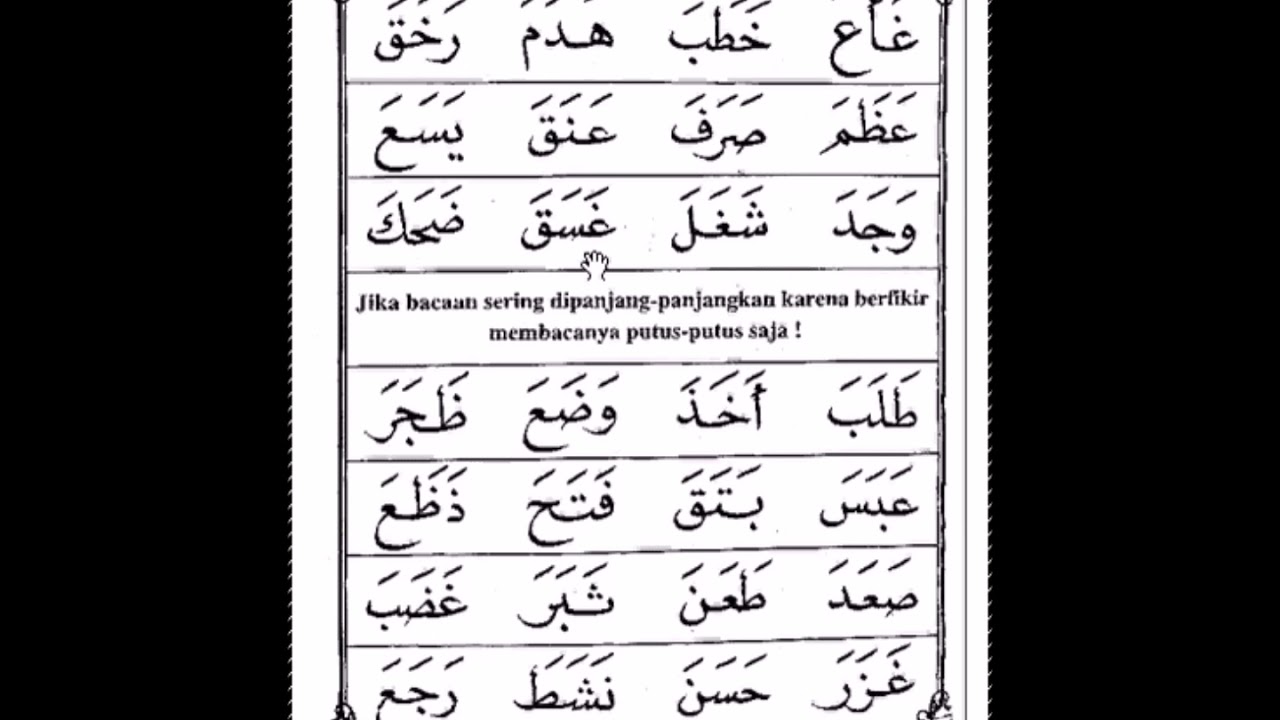 غَأَعَ خَطَبَ هَدَمَ رَخَقَ
عَظَمَ صَرَفَ عَنَقَ يَسَعَ
وَجَدَ شَغَلَ غَسَقَ ضَحَكَ
Jika bacaan sering dipanjang-panjangkan karena berfikir
membacanya putus-putus saja !
طَلَبَ أَخَذَ وَضَعَ ظَجَرَ
عَبَسَ بَتَقَ فَتَحَ ذَظَعَ
صَعَدَ طَعَنَ ثَبَرَ غَضَبَ
غَزَرَ حَسَنَ نَشَطَ رَجَعَ